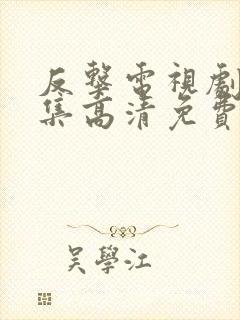 反擊電視劇
集高清免費
吳學江